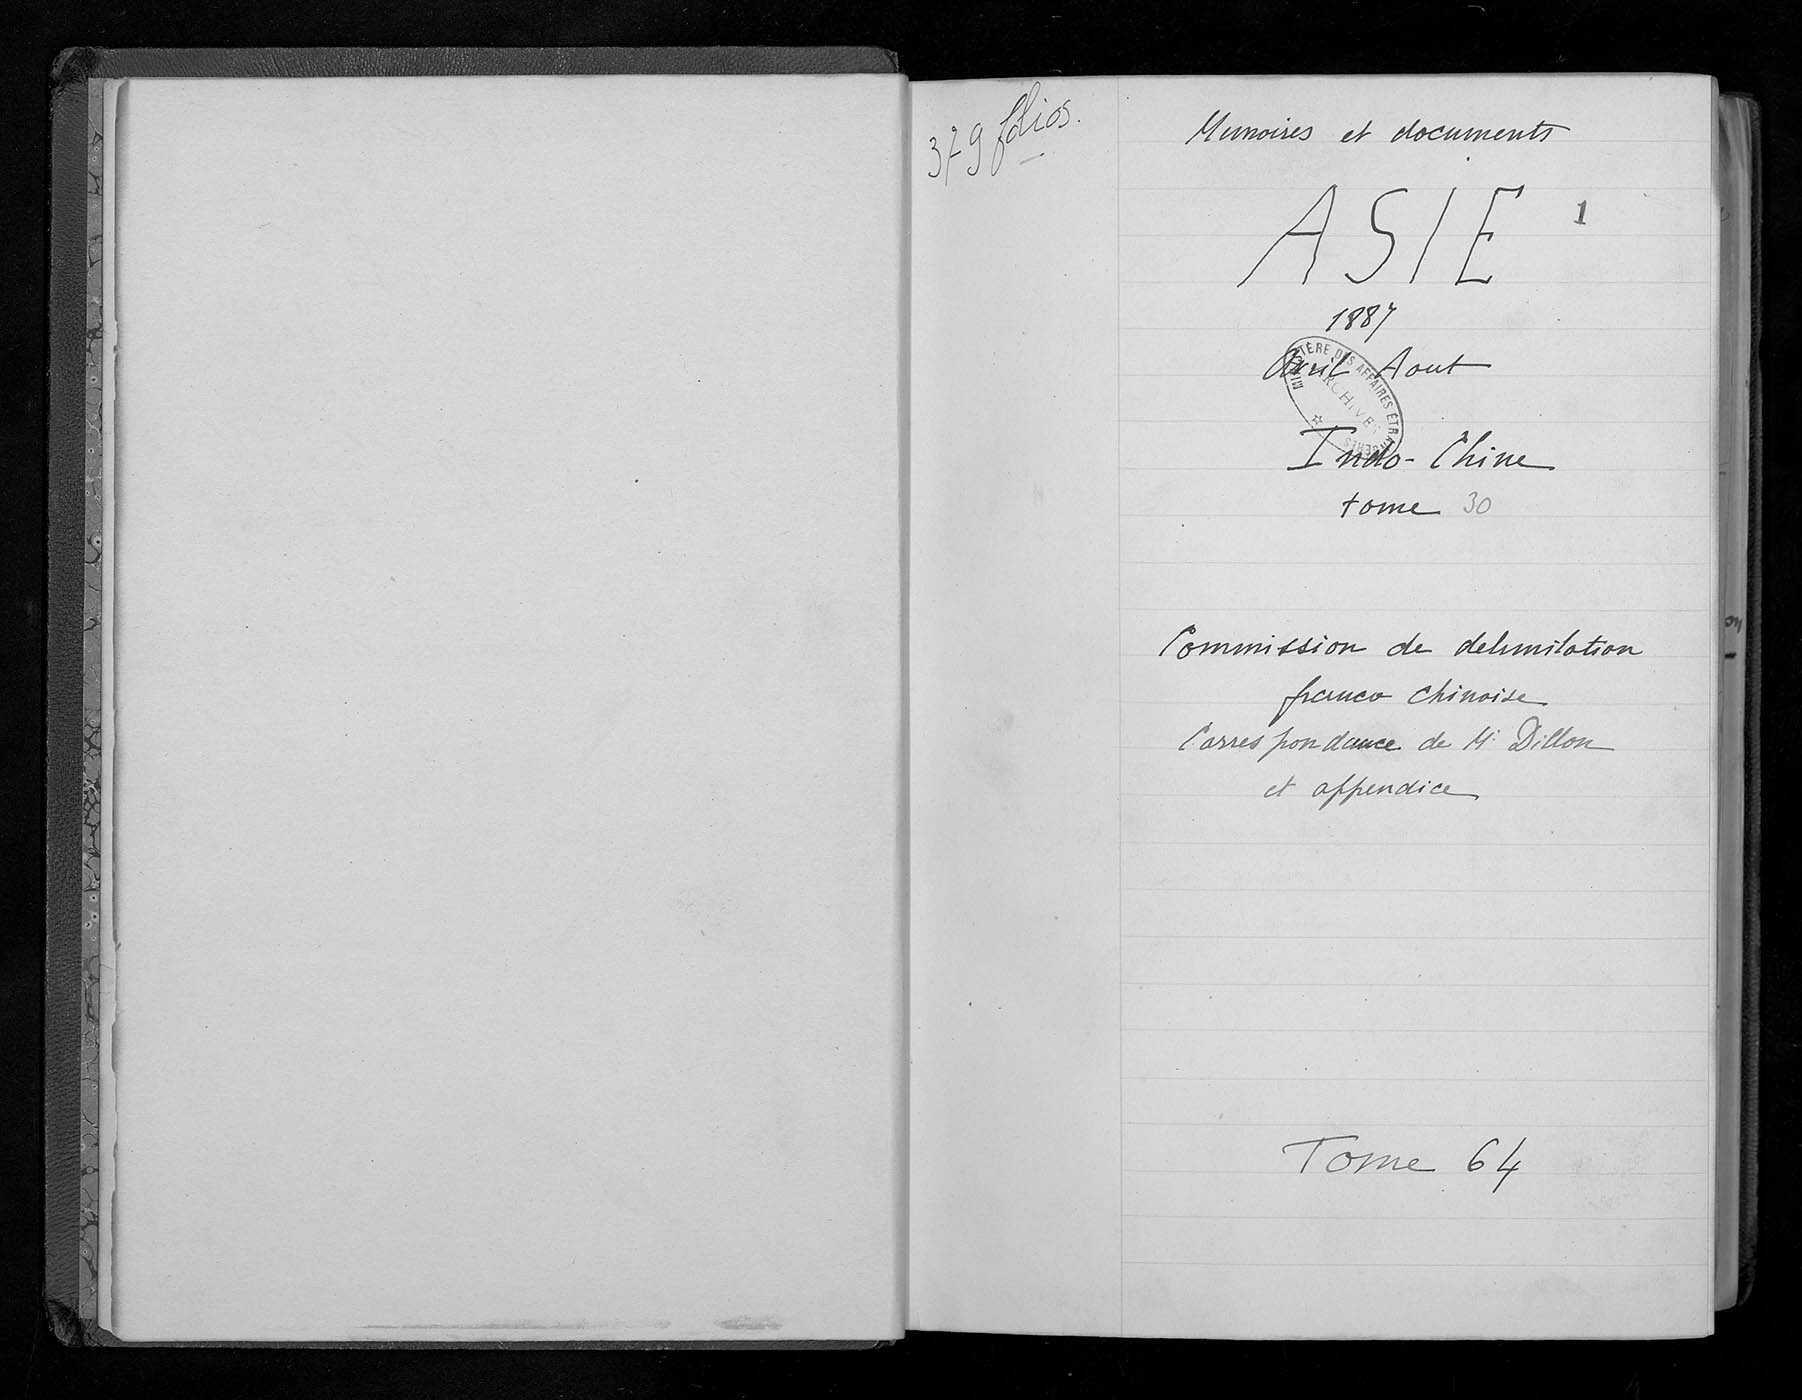 379 folios.
Memoires et documents
ASIE
1
1887
Avril Aout
MINISTÈRE DES AFFAIRES ÉTRANGÈRES
ARCHIVES
Indo-Chine
tome 30
Commission de delimitation
franco chinoise
Correspondance de Mr Dillon
et appendice
Tome 64